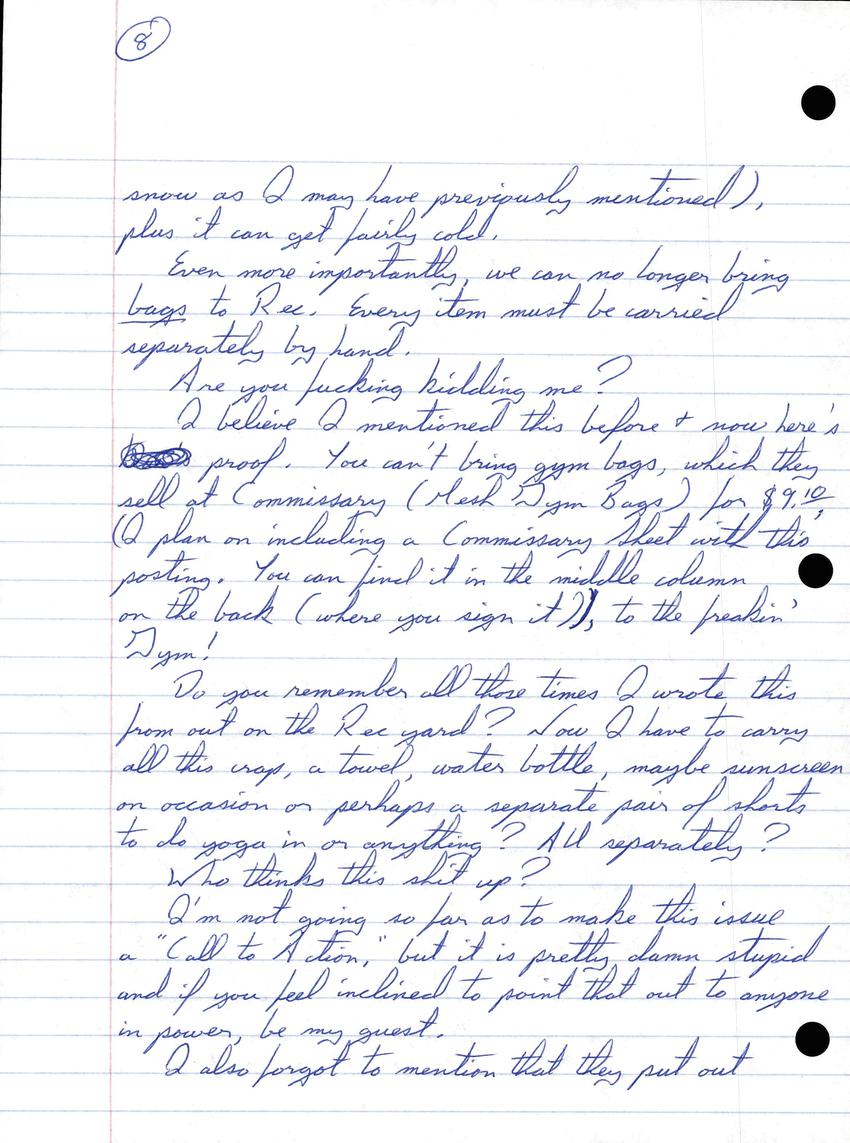 8
snow as I may have previously mentioned),
plus it can get fairly cold.
Even more importantly, we can no longer bring
bags to Rec. Every item must be carried
separately by hand.
Are you fucking kidding me?
I believe I mentioned this before + now here's
proof. You can't bring gym bags, which they
sell at Commissary (Mesh Gym Bags) for $9.10,
(I plan on including a Commissary Sheet with this
posting. You can find it in the middle column
on the back (where you sign it)), to the freakin'
Gym!
Do you remember all those times I wrote this
from out on the Rec yard? Now I have to carry
all this crap, a towel, water bottle, maybe sunscreen
on occasion or perhaps a separate pair of shorts
to do yoga in or anything? All separately?
Who thinks this shit up?
I'm not going so far as to make this issue
a "Call to Action," but it is pretty damn stupid
and if you feel inclined to point that out to anyone
in power, be my guest.
I also forgot to mention that they put out